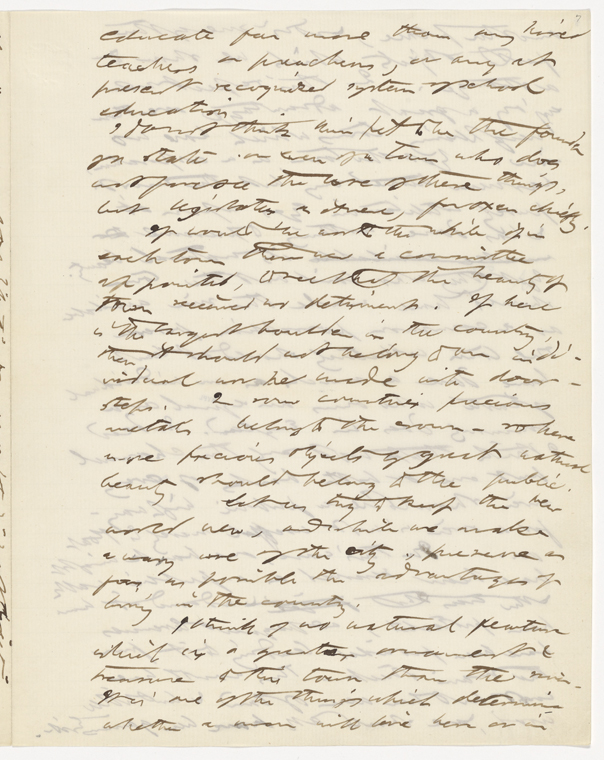 educate far more than any hired
teachers or preachers, or any at
present recognized system of school
education.
I do not think him fit to be the founder
of a state or even of a town who does
not foresee the use of these things,
but legislates as it were, for oxen chiefly.
It would be worth the while if in
each town there were a committee
appointed, to see that the beauty of
the town received no detriment. If here
is the largest boulder in the country,
then it should not belong to an indi-
vidual nor be made into door-
steps. In some countries precious
metals belong to the crown - so here
more precious objects of great natural
beauty should belong to the public.
Let us try to keep the new
world new, and while we make
a wary use of the city, preserve as
far as possible the advantages of
living in the country.
I think of no natural feature
which is a greater ornament &
treasure to this town than the river.
It is one of the things which determine
whether a man will live here or in